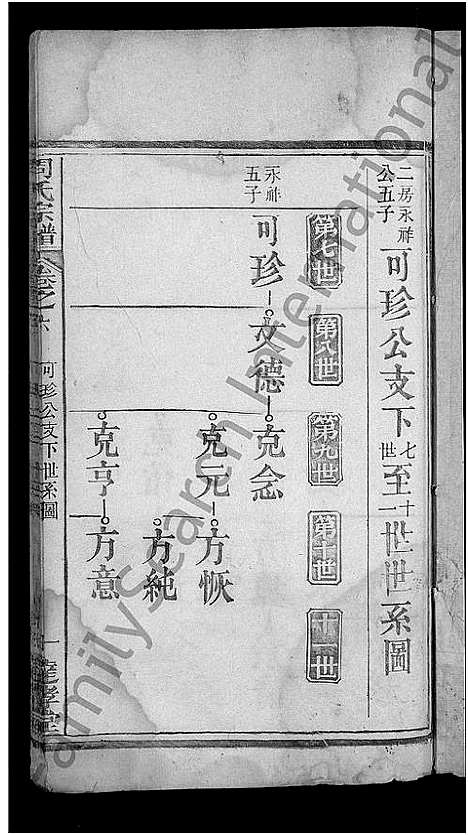 二房永祚公五子
可珍公支下七世至十一世世系圖
第七世
第八世
第九世
第十世
十一世
永祚五子
可珍
文德
克念
克元
方恢
方純
克亨
方意
周氏宗譜
卷之六
可珍公支下世系圖
一
FamilySearch International